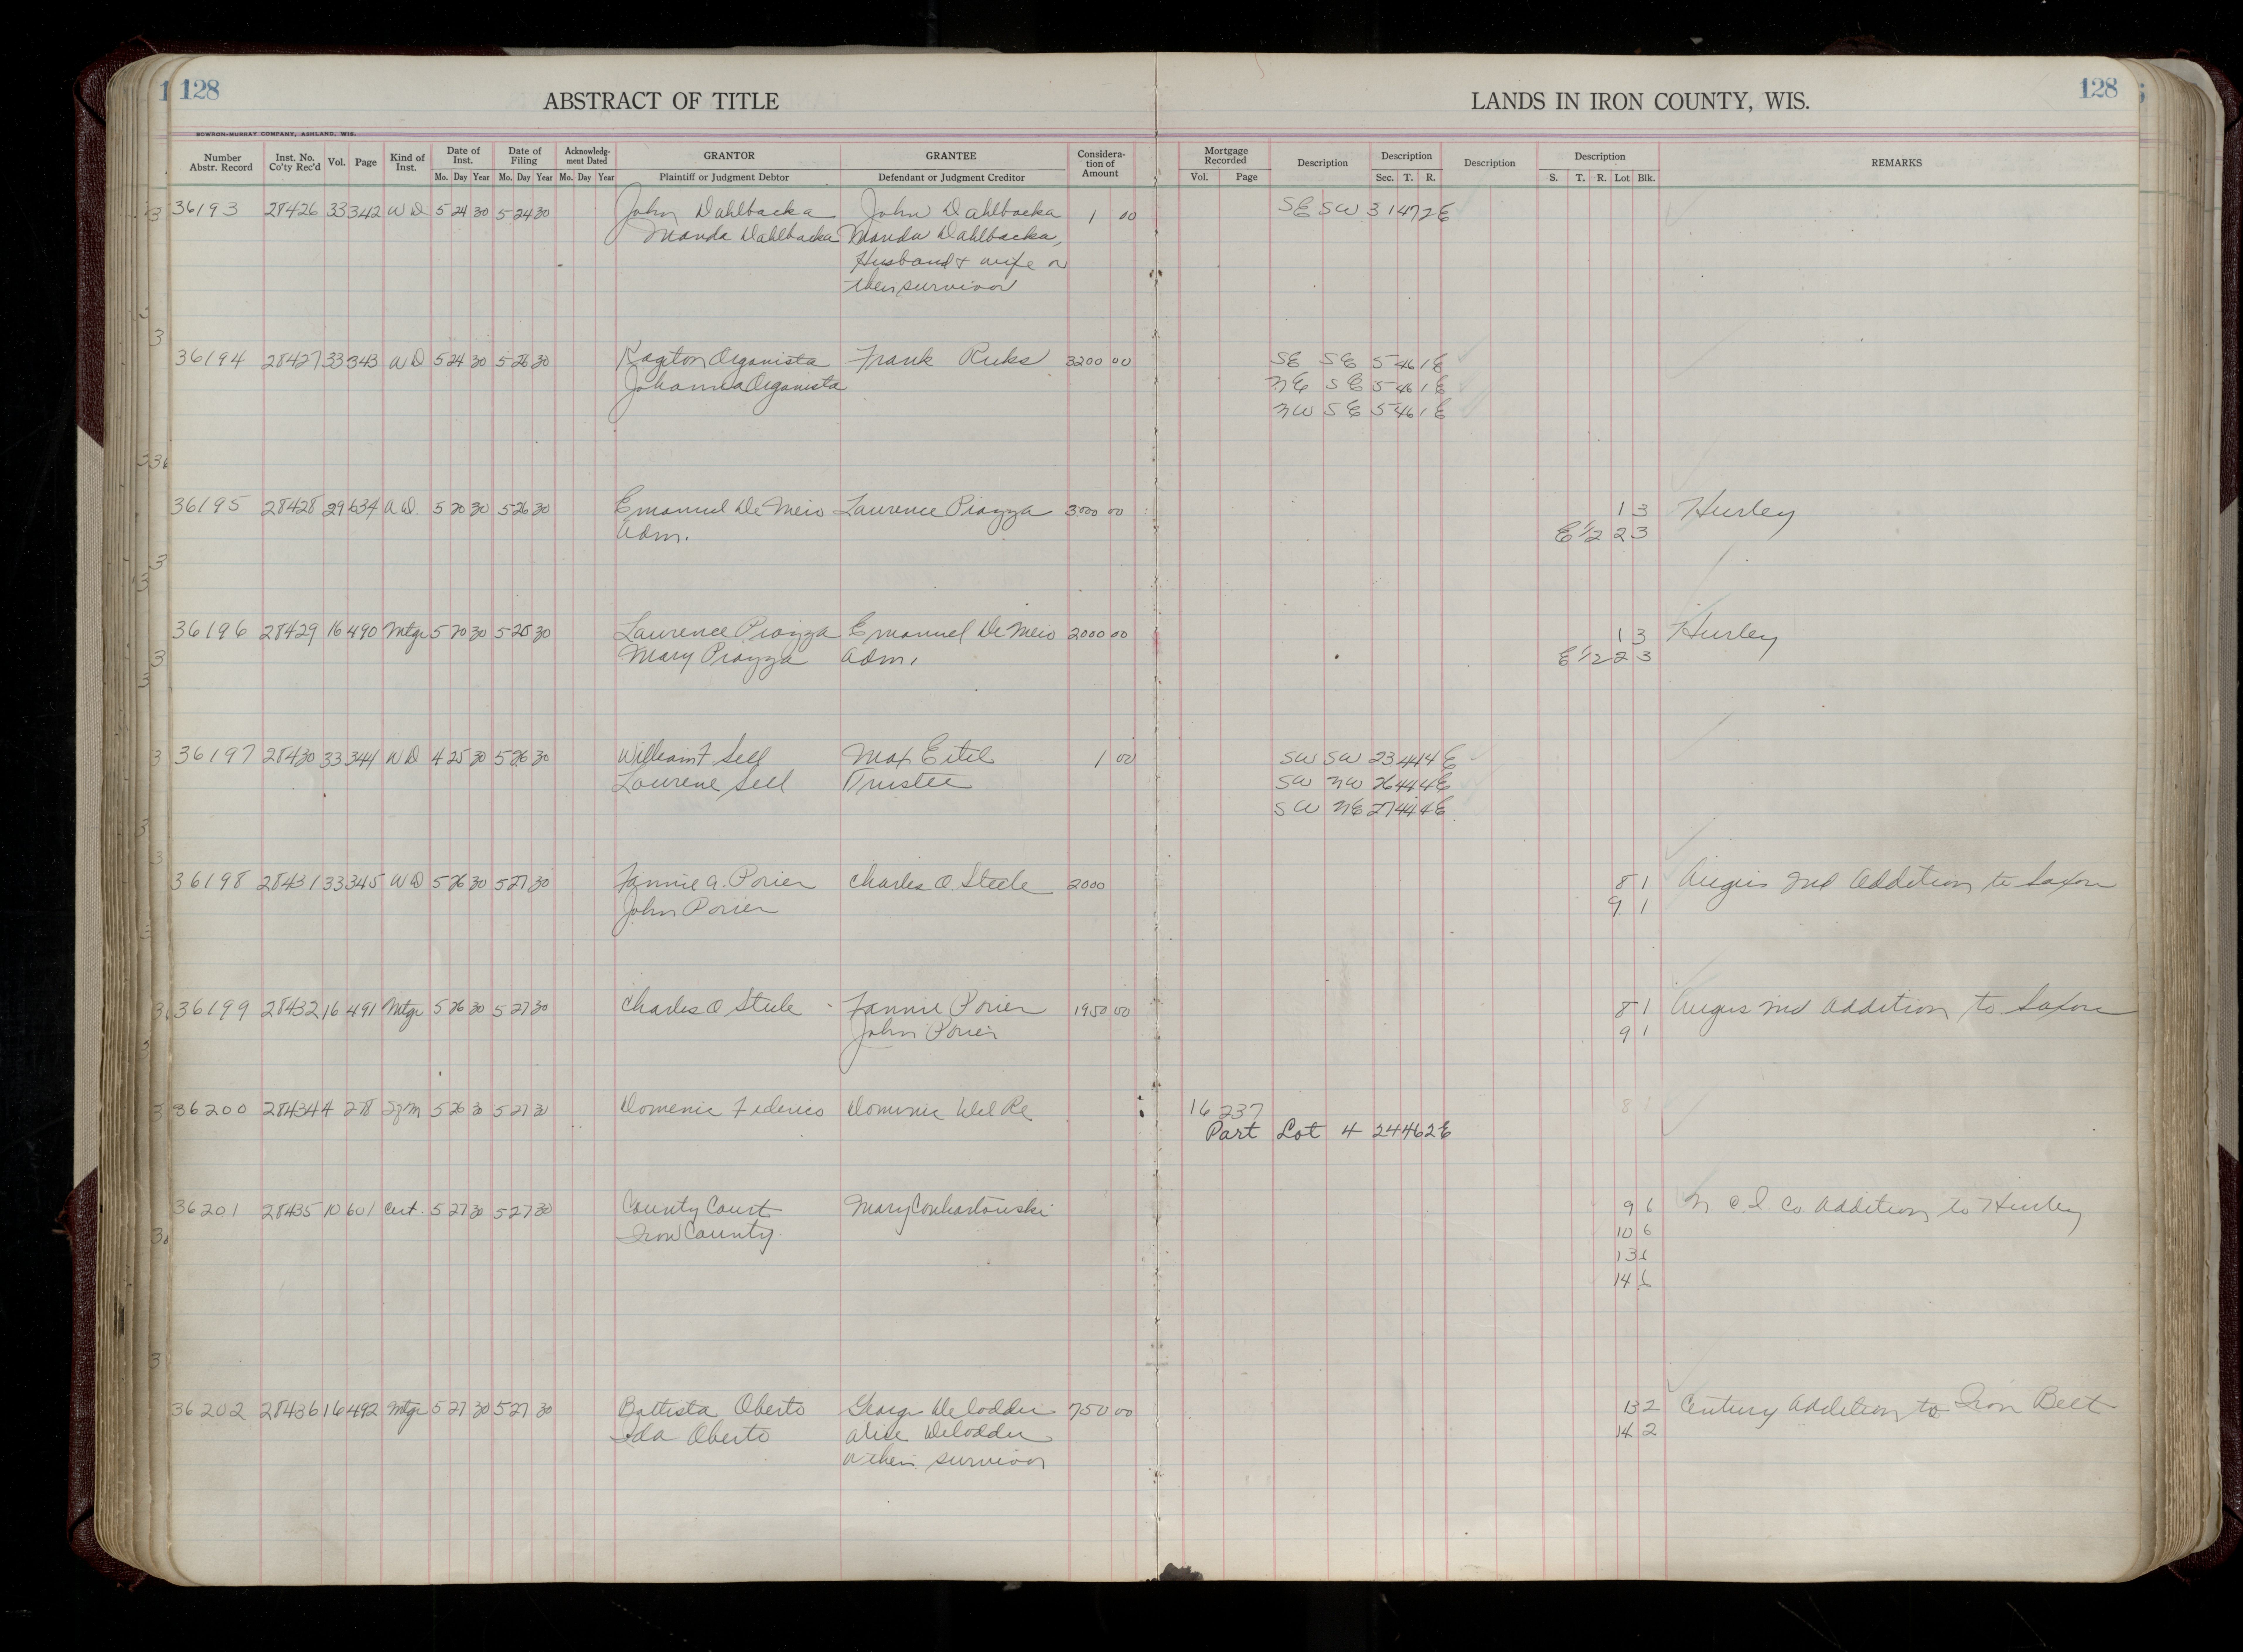 128
ABSTRACT OF TITLE
LANDS IN IRON COUNTY, WIS.
128
BOWRON-MURRAY COMPANY, ASHLAND, WIS.
Number Abstr. Record Inst. No. Co'ty Rec'd Vol. Page Kind of Inst. Date of Inst. Date of Filing Acknowledg-ment Dated GRANTOR GRANTEE Considera-tion of Amount Mortgage Recorded Description Description Description Description REMARKS
Mo. Day Year Mo. Day Year Mo. Day Year Plaintiff or Judgment Debtor Defendant or Judgment Creditor Vol. Page Sec. T. R. S. T. R. Lot Blk.
36193 28426 33 342 W D 5 24 30 5 24 30 John Dahlbacka John Dahlbacka 1 00 SE SW 31 47 2E
Manda Dahlbacka Manda Dahlbacka,
Husband & wife or
their survivor
36194 28427 33 343 W D 5 24 30 5 26 30 Organista Frank Ruks 3200 00 SE SE 5 46 1E
Johanna Organista NE SE 5 46 1E
NW SE 5 46 1E
36195 28428 29 634 A D. 5 20 30 5 26 30 Emanuel De Meio Laurence Piazza 3000 00 1 3 Hurley
Adm. E 1/2 2 3
36196 28429 16 490 Mtge 5 20 30 5 26 30 Laurence Piazza Emanuel De Meio 2000 00 1 3 Hurley
Mary Piazza Adm. E 1/2 2 3
36197 28430 33 344 W D 4 25 30 5 26 30 William F Sell Max Eitel 1 00 SW SW 23 44 4E
Laurene Sell Trustee SW NW 26 44 4E
SW NE 27 44 4E
36198 28431 33 345 W D 5 26 30 5 27 30 Fannie A. Porier Charles O. Steele 2000 8 1 Angus 2nd Addition to Saxon
John Porier 9 1
36199 28432 16 491 Mtge 5 26 30 5 27 30 Charles O Steele Fannie Porier 1950 00 8 1 Angus 2nd Addition to Saxon
John Porier 9 1
36200 28434 4 278 5 26 30 5 27 30 Domenic Federico Dominic Del Re 16 237
Part Lot 4 24 46 2E
36201 28435 10 601 Cert. 5 27 30 5 27 30 County Court Mary 9 6 N C. I. Co. Addition to Hurley
Iron County 10 6
13 6
14 6
36202 28436 16 492 Mtge 5 27 30 5 27 30 Battista Oberto George Deloddie 750 00 13 2 Century Addition to Iron Belt
Ida Oberto Alice Deloddie 14 2
or their survivor